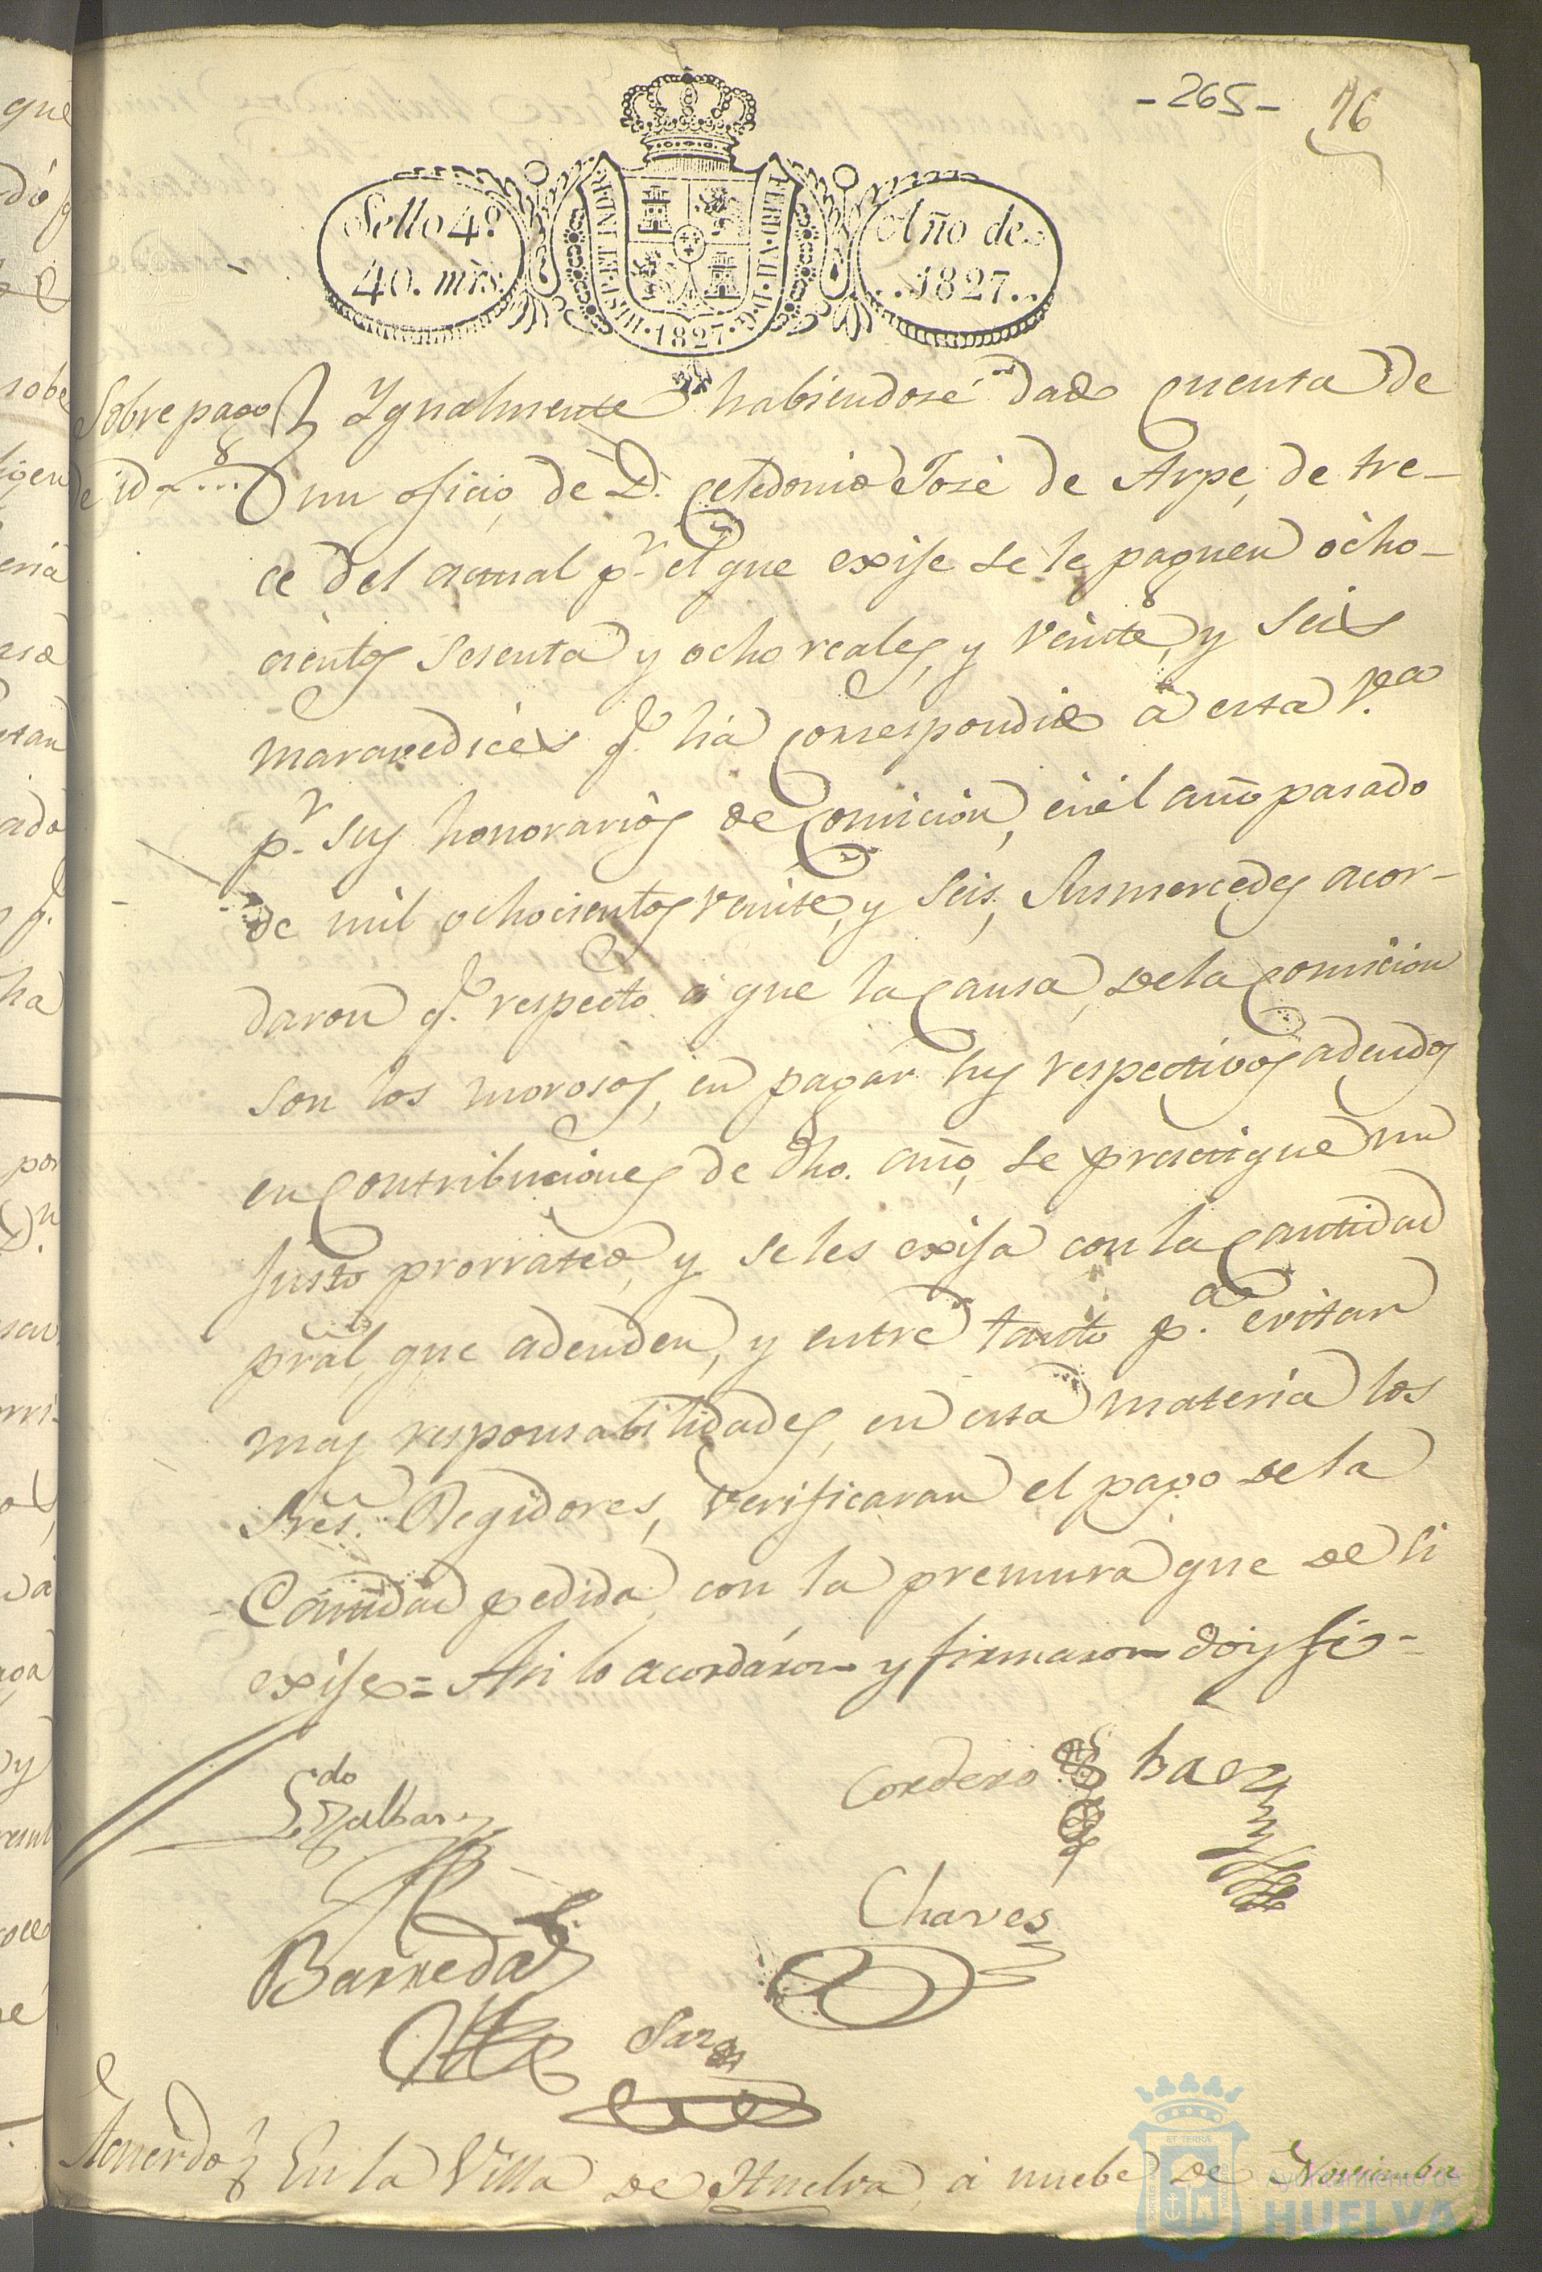 -265- 76
Sello 4º. 40. mrs.
HISP. ET IND. R. FERD. VII. D. G. 1827.
Año de 1827..
Sobre pago
de id....
Ygualmente habiendosé dado Cuenta de
un oficio, de D. Celedonio José de Arpe, de tre-
ce del actual pr. el que exije se le paguen ocho-
cientos sesenta y ocho reales, y veinte, y seis
maravedices q. há Correspondido á esta Va.
pr. sus honorarios de Comicion, en el año pasado
de mil ochocientos veinte, y seis, Sus mercedes acor-
daron q. respecto á que la Causa, de la Comicion
son los morosos, en pagár sus respectivos adeudos
en Contribuciones de dho. año, se practigue un
Justo prorrateo, y se les exija con la Cantidad
pral, que adeuden, y entre tanto pa. evitar
mas responsabilidades, en esta materia los
Sres. Regidores, verificaran el pago de la
Cantidad pedida, con la premura que de si
exije = Asi lo acordáron y firmaron doy fé-
Ldo
Cordero
Baez
Barreda
Chaves
Acuerdo
En la Villa de Huelva, á nuebe de Noviembre
Ayuntamiento de
HUELVA